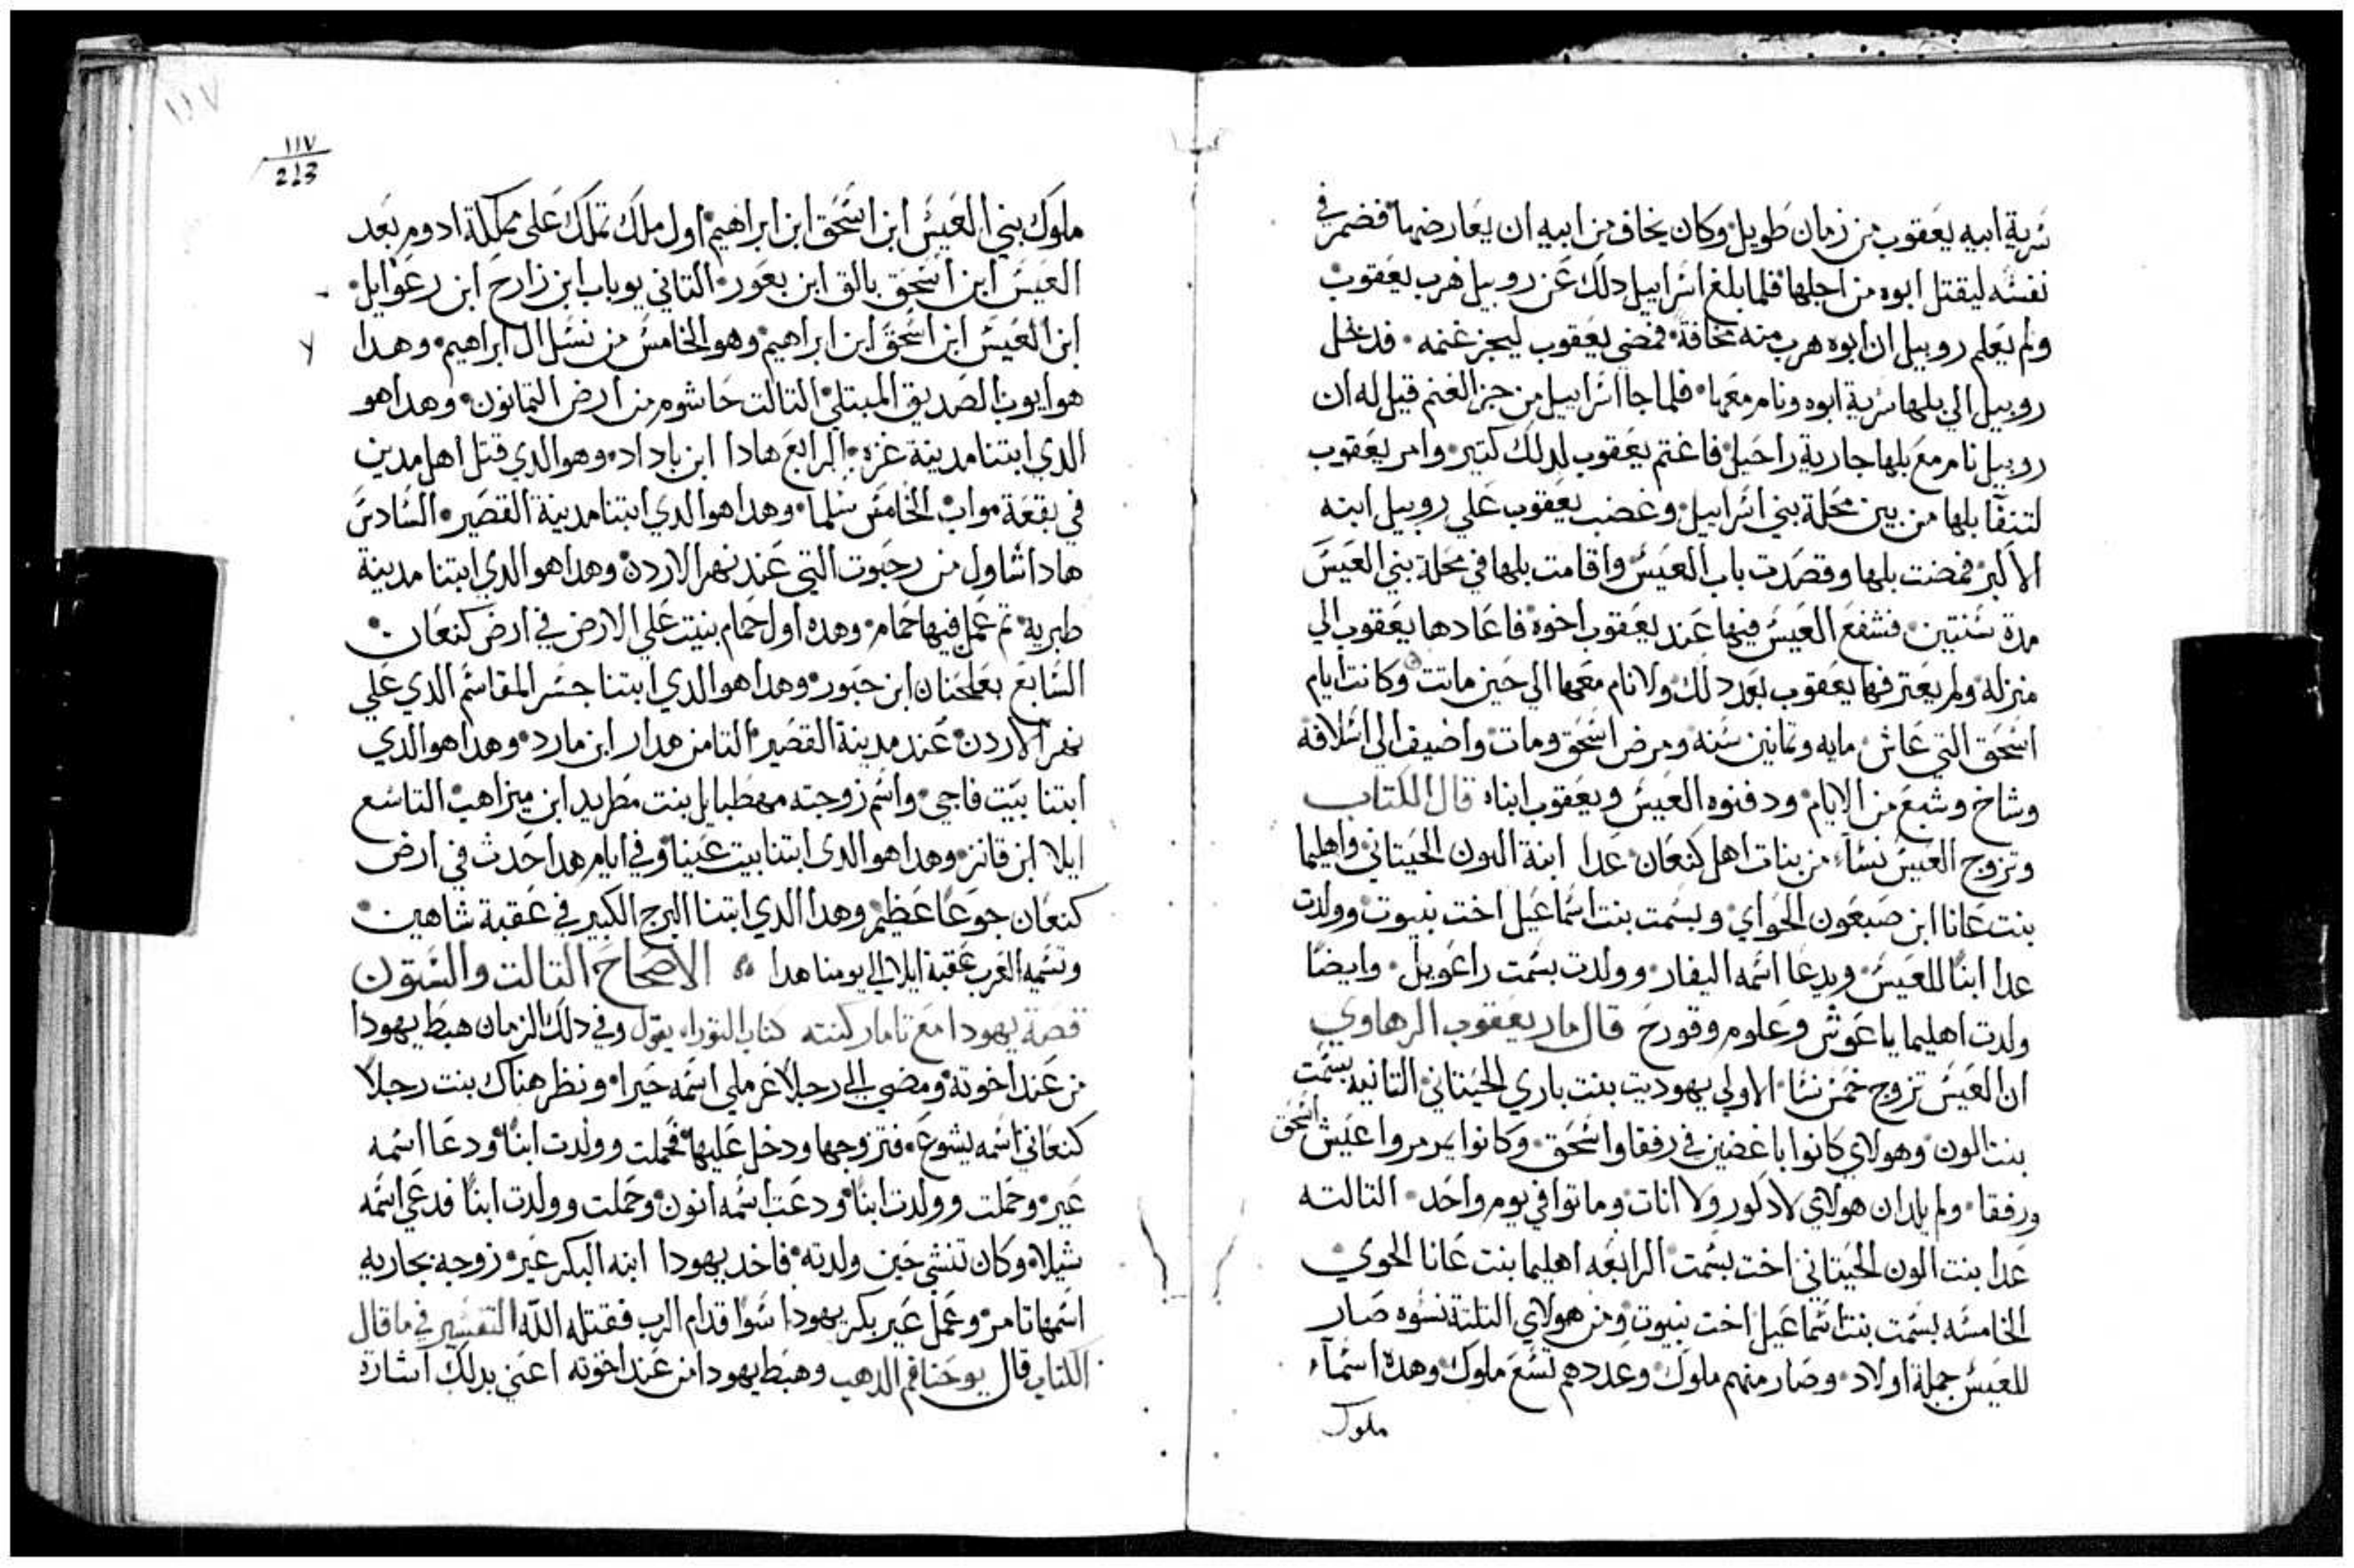 سرية ابيه يعقوب من زمان طويل وكان يخاف من ابيه ان يعارضهما فضمر في
نفسه ليقتل ابوه من اجلها فلما بلغ اسراييل دلك عن روبيل هرب يعقوب
ولم يعلم روبيل ان ابوه هرب منه مخافة فمضي يعقوب ليجز غنمه فدخل
روبيل الي بلها سرية ابوه ونام معها فلما جا اسراييل من جز الغنم قيل له ان
روبيل نام مع بلها جارية راحيل فاغتم يعقوب لدلك كتير وامر يعقوب
لتنفا بلها من بين محلة بني اسراييل وغضب يعقوب علي روبيل ابنه
الاكبر فمضت بلها وقصدت باب العيس واقامت بلها في محلة بني العيس
مدة سنتين فشفع العيس فيها عند يعقوب اخوه فاعادها يعقوب الي
منزله ولم يعترفها يعقوب بعد دلك ولا نام معها الي حين ماتت وكانت ايام
اسحق التي عاش مايه وتمانين سنه ومرض اسحق ومات واضيف الي اسلافه
وشاخ وشبع من الايام ودفنوه العيس ويعقوب ابناه قال الكتاب
وتزوج العيس نساء من بنات اهل كنعان عدا ابنة الون الحيتاني واهليما
بنت عانا ابن صبعون الحواي وبسمت بنت اسماعيل اخت نبيوت وولدت
عدا ابنًا للعيس ويدعا اسمه اليفار وولدت بسمت راعويل وايضًا
ولدت اهليما ياعوش وعلوم وقورح قال مار يعقوب الرهاوي
ان العيس تزوج خمس نسا الاولي يهوديت بنت باري الحيتاني التانيه بسمت
بنت الون وهولاي كانوا باغضين في رفقا واسحق وكانوا يمرمروا عيش اسحق
ورفقا ولم يلدان هولاي لا دكور ولا انات وماتوا في يوم واحد التالته
عدا بنت الون الحيتاني اخت بسمت الرابعه اهليما بنت عانا الحوي
الخامسه بسمت بنت اسماعيل اخت نبيوت ومن هولاي التلتة نسوه صار
للعيس جملة اولاد وصار منهم ملوك وعددهم تسع ملوك وهده اسماء
ملوك
١١٧
١١٧
213
ملوك بني العيس ابن اسحق ابن ابراهيم اول ملك تملك علي مملكة ادوم بعد
العيس ابن اسحق بالق ابن بعور التاني يوباب ابن زارح ابن رعوايل
ابن العيس ابن اسحق ابن ابراهيم وهو الخامس من نسل ال ابراهيم وهدا
هو ايوب الصديق المبتلي التالت حاشوم من ارض التمانون وهدا هو
الدي ابتنا مدينة غزه الرابع هادا ابن باداد وهو الدي قتل اهل مدين
في بقعة مواب الخامس سلما وهدا هو الدي ابتنا مدينة القصير السادس
هادا شاول من رحبوت التي عند نهر الاردن وهدا هو الدي ابتنا مدينة
طبرية تم عمل فيها حمام وهده اول حمام بنيت علي الارض في ارض كنعان
السابع بعلحنان ابن حبور وهدا هو الدي ابتنا جسر المقاسم الدي علي
نهر الاردن عند مدينة القصير التامن هدار ابن مارد وهدا هو الدي
ابتنا بيت فاجي واسم زوجته مهطبايل بنت مطريد ابن ميزاهب التاسع
ايلا ابن قانز وهدا هو الدي ابتنا بيت عينا وفي ايام هدا حدث في ارض
كنعان جوعًا عظيم وهدا الدي ابتنا البرج الكبير في عقبة شاهين
وتسميه العرب عقبة ايلا الي يومنا هدا الاصحاح التالت والستون
قصة يهودا مع تامار كنته كتاب التوراه يقول وفي دلك الزمان هبط يهودا
من عند اخوته ومضي الي رجلا عرملي اسمه حيرا ونظر هناك بنت رجلًا
كنعاني اسمه يشوع فتزوجها ودخل عليها فحملت وولدت ابنًا ودعا اسمه
عير وحملت وولدت ابنًا ودعت اسمه انون وحملت وولدت ابنًا فدعي اسمه
شيلاه وكان تنشي حين ولدته فاخد يهودا ابنه البكر عير زوجه بجاريه
اسمها تامر وعمل عير بكر يهودا سوا قدام الرب فقتله الله التفسير في ما قال
الكتاب قال يوحنا فم الدهب وهبط يهودا من عند اخوته اعني بدلك اشارة